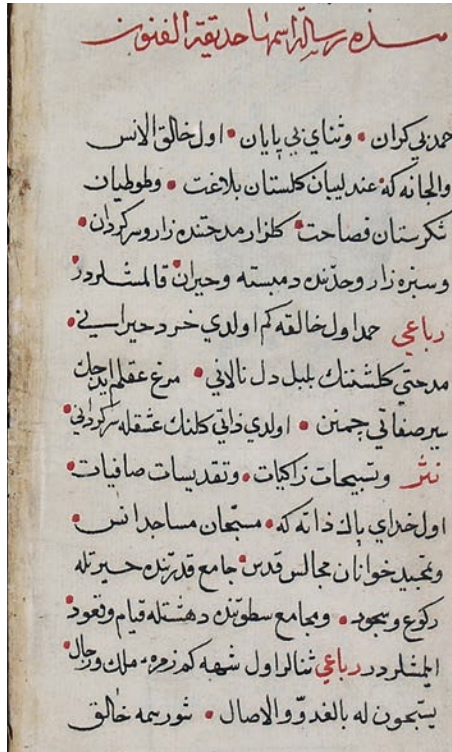 هذه رسالة اسمها حديقة الفنون
حمد بي كران • وثناي بي پايان • اول خالق الانس
والجانه كه • عندليبان كلستان بلاغت • وطوطيان
شكرستان فصاحت • كلزار مدحتنده زار وسركردان •
وسبزه زار وحدتنده دمبسته وحيران قالمشلردر •
رباعي حمد اول خالقه كم اولدي خرد حيراني •
مدحتي كلشننك بلبل دل نالاني • مرغ عقلم ايدجك
سير صفاتي چمنن • اولدي ذاتي كلنك عشقله سركرداني •
نثر وتسبيحات زاكيات • وتقديسات صافيات •
اول خداي پاك ذاته كه • مسبحان مساجد انس •
وتمجيد خوانان مجالس قدس • جامع قدرتنده حيرتله
ركوع وسجود • ومجامع سطوتنده دهشتله قيام وقعود •
ايلمشلردر رباعي ثنالر اول شهه كم زمرهٔ ملك ورجال •
يسبحون له بالغدو والاصال • شورسمه خالق